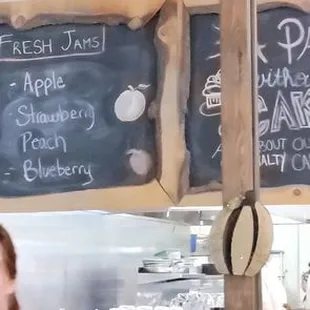 FRESH JAMS
- Apple
- Strawberry
Peach
- Blueberry
A PA
witho
CAK
BOUT OUR
ALTY CA